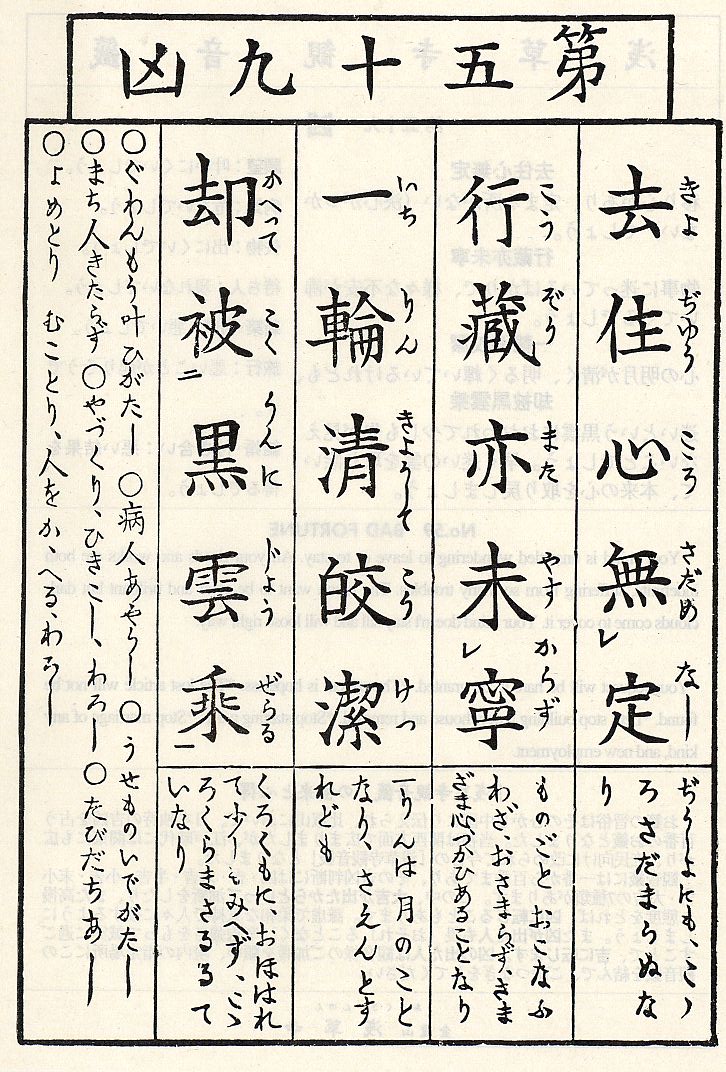 第五十九凶
きよ ぢゆう こころ さだめ なし
去住心無レ定
ぢうしよにも、こゝ
ろさだまらぬな
り
こう ぞう また やす からず
行藏亦未レ寧
ものごとおこなふ
わざ、おさまらず、さま
ざま心づかひあることなり
いち りん きようして こう けつ
一輪清皎潔
一りんは月のこと
なり、さえんとす
れども
かへって こく うんに じよう ぜらる
却被二黒雲乘一
くろくもにおほはれ
て少しもみへず、こゝ
ろくらまさるるて
いなり
○ぐわんもう叶ひがたし ○病人あやうし ○うせものいでがたし
○まち人きたらず ○やづくり、ひきこし、わろし ○たびだちあし
○よめとり むことり、人をかへる、わろし